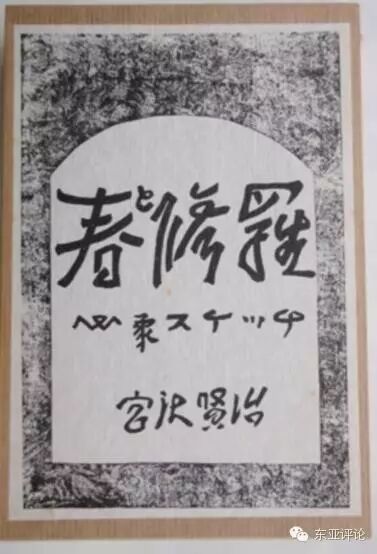 春と修羅
心象スケッチ
宮沢賢治
东亚评论